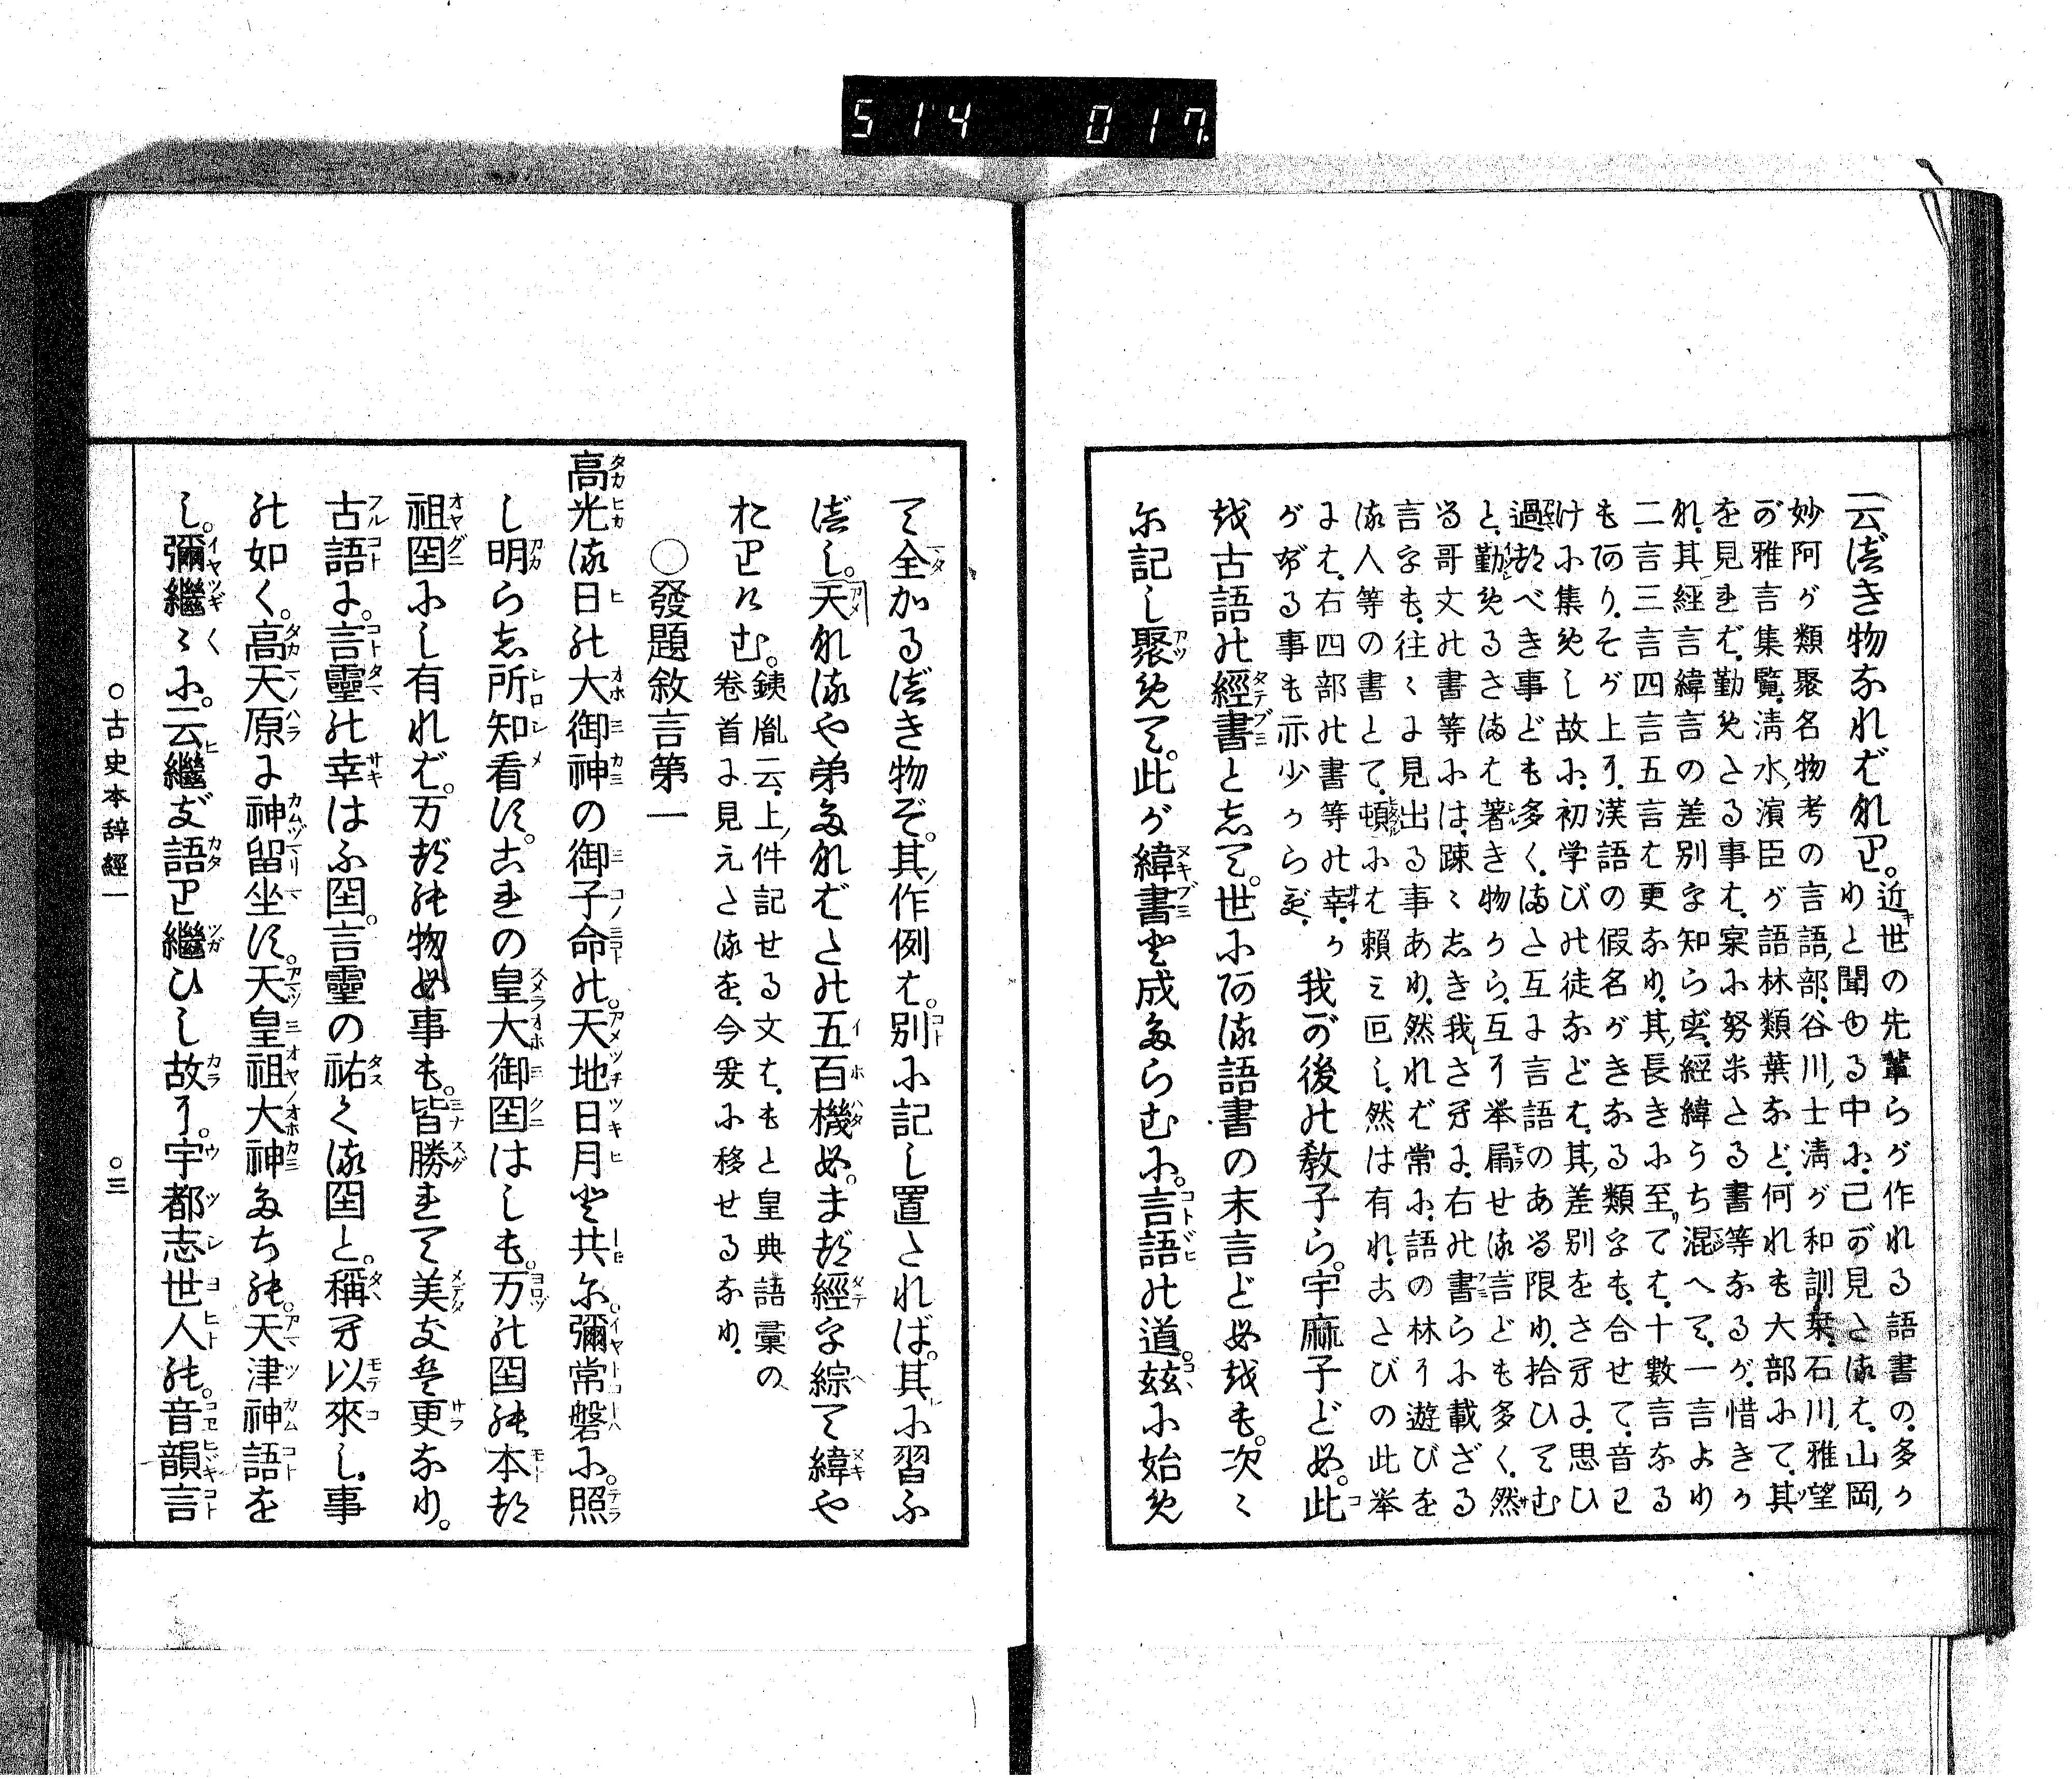 514 017.
云べき物なればなり。近世の先輩らが作れる語書の、多か
りと聞ゆる中に、己が見たるは、山岡
妙阿が類聚名物考の言語部、谷川士淸が和訓栞、石川雅望
が雅言集覽、淸水濱臣が語林類葉など、何れも大部にて、其
を見れば、勤めたる事は、寀に努米たる書等なるが、惜きか
な、其經言緯言の差別を知らず、經緯うち混へて、一言より
二言三言四言五言は更なり、其長きに至ては、十數言なる
もあり、そが上に、漢語の假名がきなる類をも、合せて、音もて
けに集めし故に、初学びの徒などは、其差別をさへに、思ひ
過つべき事ども多く、また互に言語のある限り、拾ひてむ
と、勤めるさまは著き物から、互に挙漏せる言ども多く、然
る哥文の書等には、踈〻しき我さへに、右の書らに載ざる
言をも、往〻に見出る事あり、然れば常に、語の林に遊びを
る人等の書とて、頓には賴み叵し、然は有れ、さたびの此挙
には、右四部の書等の幸、か
がずる事も亦少からず、我が後の敎子ら。宇麻子ども。此
越古語の經書として。世にある語書の末言ども越も。次〻
尓記し聚めて。此が緯書と成たらむに。言語の道。玆に始め
て全かるべき物ぞ。其作例は。別に記し置たれば。其に習ふ
べし。天なるや弟たなばたの五百機も。まづ經を綜て緯や
おりけむ。銕胤云、上件記せる文は、もと皇典語彙の
卷首に見えたるを、今爰に移せるなり、
○發題敘言第一
高光る日の大御神の御子命の。天地日月と共尓。彌常磐に。照
し明らし所知看す。これの皇大御国はしも。万の国の本つ
祖国にし有れば。万づの物も事も。皆勝れて美きは更なり。
古語に。言靈の幸はふ国。言靈の祐くる国と。稱へ以來し、事
の如く。高天原に神留坐す。天皇祖大神たちの。天津神語を
し。彌繼〻に。云繼ぎ語り繼ひし故に。宇都志世人の。音韻言
○古史本辭經一 ○三